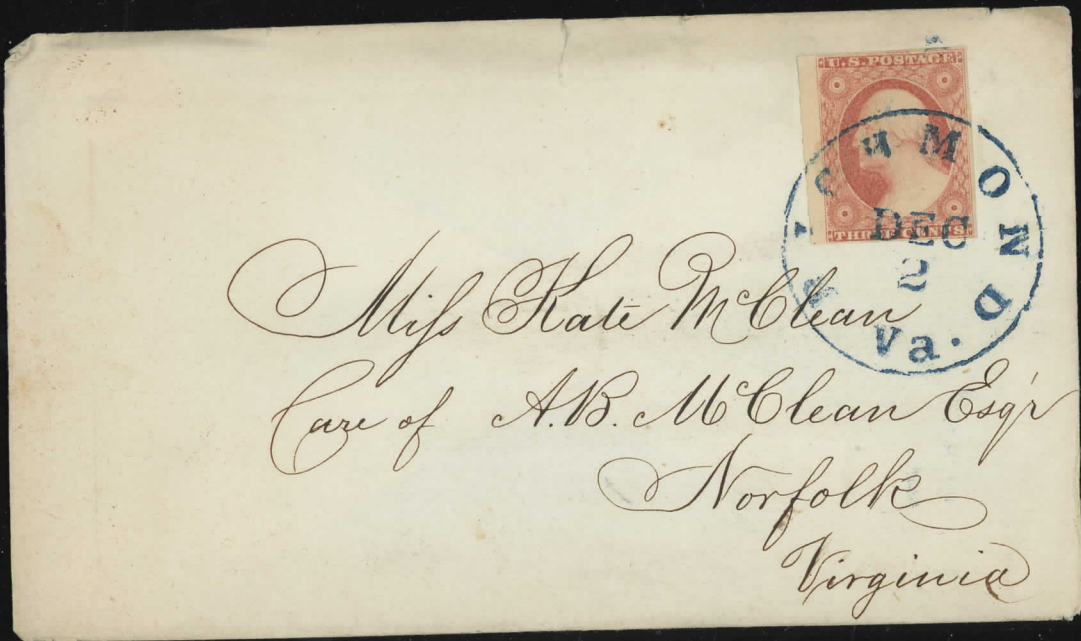 U.S. POSTAGE
THREE CENTS
RICHMOND
DEC
2
Va.
Miſs Kate McClean
Care of A.B. McClean Esq'r
Norfolk
Virginia